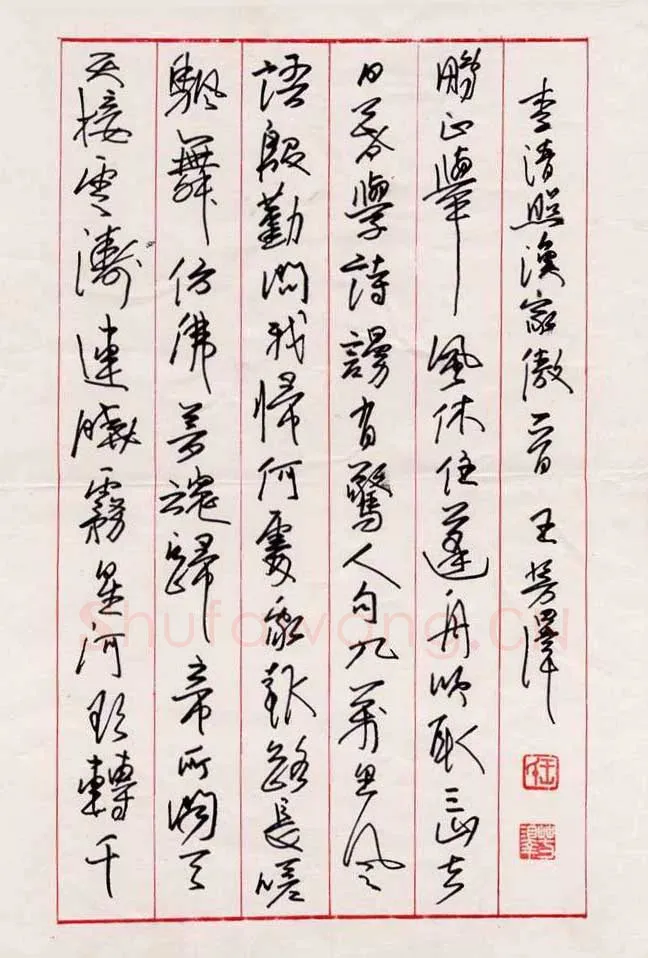 天接雲濤連曉霧星河欲轉千
颿舞仿佛夢魂歸帝所聞天
語殷勤問我帰何處我報路長嗟
日暮學詩謾有驚人句九萬里風
鵬正舉風休住蓬舟吹取三山去
李清照漁家傲一首 王芳澤
Shufawang.CN